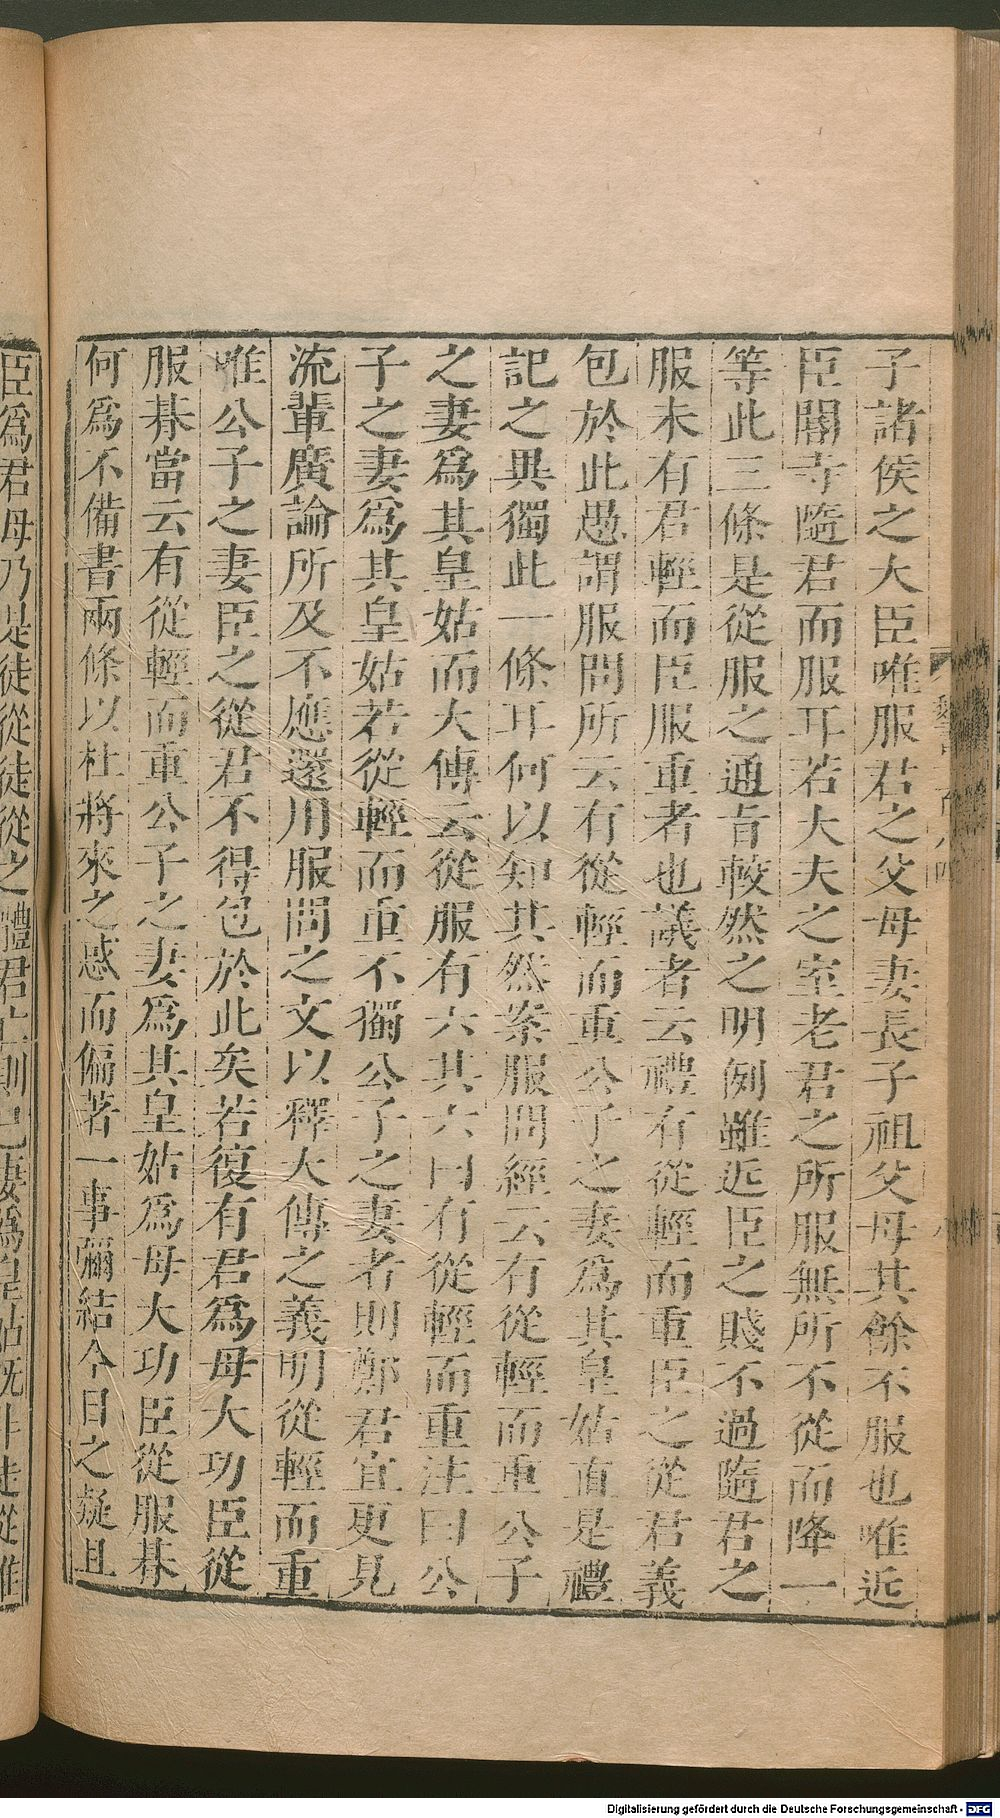 子諸侯之大臣唯服君之父母妻長子祖父母其餘不服也唯近
臣閽寺隨君而服耳若大夫之室老君之所服無所不從而降一
等此三條是從服之通旨較然之明例雖近臣之賤不過隨君之
服未有君輕而臣服重者也議者云禮有從輕而重臣之從君義
包於此愚謂服問所云有從輕而重公子之妻爲其皇姑直是禮
記之異獨此一條耳何以知其然案服問經云有從輕而重公子
之妻爲其皇姑而大傳云從服有六其六曰有從輕而重注曰公
子之妻爲其皇姑若從輕而重不獨公子之妻者則鄭君宜更見
流輩廣論所及不應還用服問之文以釋大傳之義明從輕而重
唯公子之妻臣之從君不得包於此矣若復有君爲母大功臣從
服朞當云有從輕而重公子之妻爲其皇姑爲母大功臣從服朞
何爲不備書兩條以杜將來之惑而偏著一事彌結今日之疑且
臣爲君母乃是徒從徒從之體君亡則已妻爲皇姑既非徒從雖
Digitalisierung gefördert durch die Deutsche Forschungsgemeinschaft - DFG